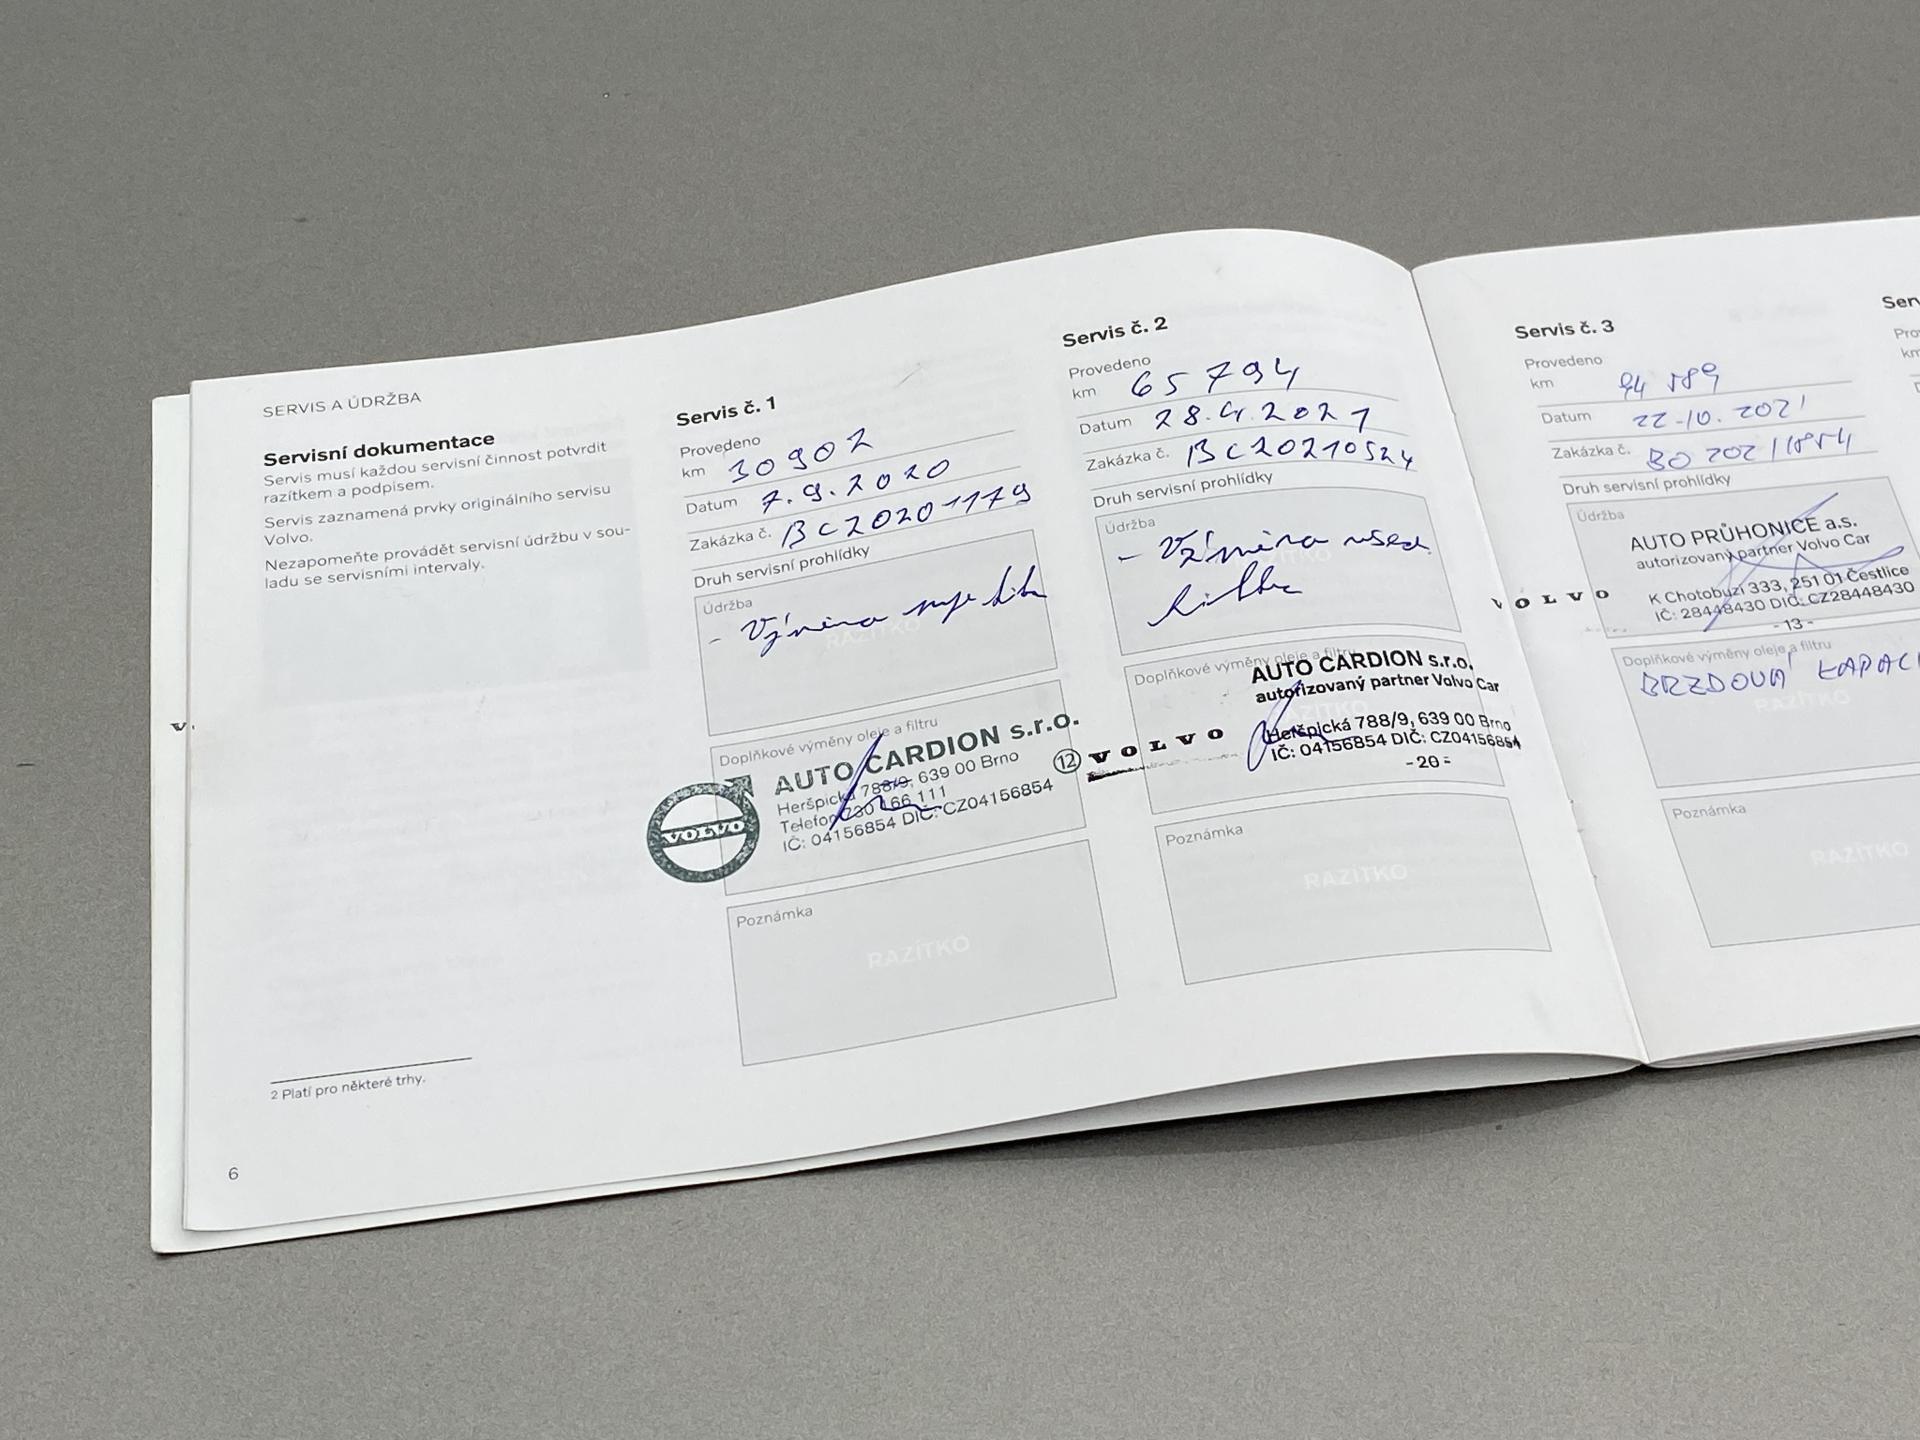 SERVIS A ÚDRŽBA
Servisní dokumentace
Servis musí každou servisní činnost potvrdit
razítkem a podpisem.
Servis zaznamená prvky originálního servisu
Volvo.
Nezapomeňte provádět servisní údržbu v sou-
ladu se servisními intervaly.
2 Platí pro některé trhy.
6
Servis č. 1
Provedeno
km 30902
Datum 7.9.2020
Zakázka č. BC2020-1179
Druh servisní prohlídky
Údržba
- Výměna
RAZÍTKO
Doplňkové výměny oleje a filtru
VOLVO
AUTO CARDION s.r.o.
Heršpická 788/9, 639 00 Brno
Telefon 730 166 111
IČ: 04156854 DIČ: CZ04156854
12
Poznámka
RAZÍTKO
Servis č. 2
Provedeno
km 65794
Datum 28.4.2021
Zakázka č. BC20210524
Druh servisní prohlídky
Údržba
- Výměna
Doplňkové výměny oleje a filtru
AUTO CARDION s.r.o.
autorizovaný partner Volvo Car
VOLVO
Heršpická 788/9, 639 00 Brno
IČ: 04156854 DIČ: CZ04156854
- 20 -
Poznámka
RAZÍTKO
Servis č. 3
Provedeno
km
Datum 22.10.2021
Zakázka č.
Druh servisní prohlídky
Údržba
AUTO PRŮHONICE a.s.
autorizovaný partner Volvo Car
VOLVO
K Chotobuzi 333, 251 01 Čestlice
IČ: 28448430 DIČ: CZ28448430
- 13 -
Doplňkové výměny oleje a filtru
BRZDOVÁ KAPAL
RAZÍTKO
Poznámka
RAZÍTKO